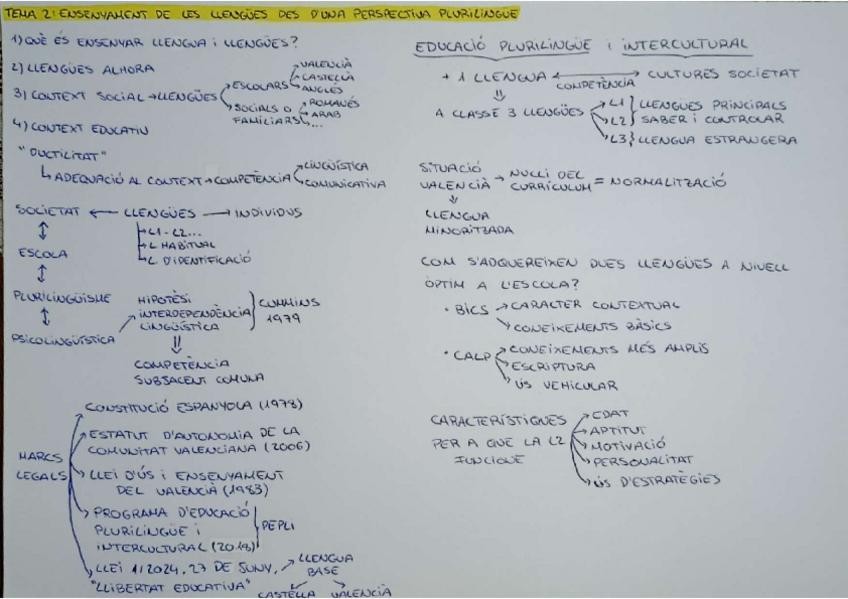 TEMA 2: ENSENYAMENT DE LES LLENGÜES DES D'UNA PERSPECTIVA PLURILINGÜE
1) QUÈ ÉS ENSENYAR LLENGUA I LLENGÜES?
2) LLENGÜES ALHORA
3) CONTEXT SOCIAL → LLENGÜES
ESCOLARS
VALENCIÀ
CASTELLÀ
ANGLÉS
SOCIALS O
FAMILIARS
ROMANÉS
ÀRAB
...
4) CONTEXT EDUCATIU
"DUCTILITAT"
ADEQUACIÓ AL CONTEXT → COMPETÈNCIA
LINGÜÍSTICA
COMUNICATIVA
SOCIETAT ← LLENGÜES → INDIVIDUS
L1 - L2...
L HABITUAL
L. D'IDENTIFICACIÓ
ESCOLA
PLURILINGÜISME
PSICOLINGÜÍSTICA
HIPOTÈSI
INTERDEPENDÈNCIA
LINGÜÍSTICA
CUMMINS
1979
COMPETÈNCIA
SUBJACENT COMUNA
MARCS
LEGALS
CONSTITUCIÓ ESPANYOLA (1978)
ESTATUT D'AUTONOMIA DE LA
COMUNITAT VALENCIANA (2006)
LLEI D'ÚS I ENSENYAMENT
DEL VALENCIÀ (1983)
PROGRAMA D'EDUCACIÓ
PLURILINGÜE I
INTERCULTURAL (2018)
PEPLI
LLEI 1/2024, 27 DE JUNY,
"LLIBERTAT EDUCATIVA"
LLENGUA
BASE
CASTELLÀ VALENCIÀ
EDUCACIÓ PLURILINGÜE I INTERCULTURAL
+ 1 LLENGUA ↔ CULTURES SOCIETAT
COMPETÈNCIA
A CLASSE 3 LLENGÜES
L1
L2
LLENGUES PRINCIPALS
SABER I CONTROLAR
L3} LLENGUA ESTRANGERA
SITUACIÓ
VALENCIÀ
→ NUCLI DEL
CURRÍCULUM = NORMALITZACIÓ
LLENGUA
MINORITZADA
COM S'ADQUEREIXEN DUES LLENGÜES A NIVELL
ÒPTIM A L'ESCOLA?
• BICS → CARÀCTER CONTEXTUAL
CONEIXEMENTS BÀSICS
• CALP
CONEIXEMENTS MÉS AMPLIS
ESCRIPTURA
ÚS VEHICULAR
CARACTERÍSTIQUES
PER A QUE LA L2
FUNCIONE
EDAT
APTITUT
MOTIVACIÓ
PERSONALITAT
ÚS D'ESTRATÈGIES